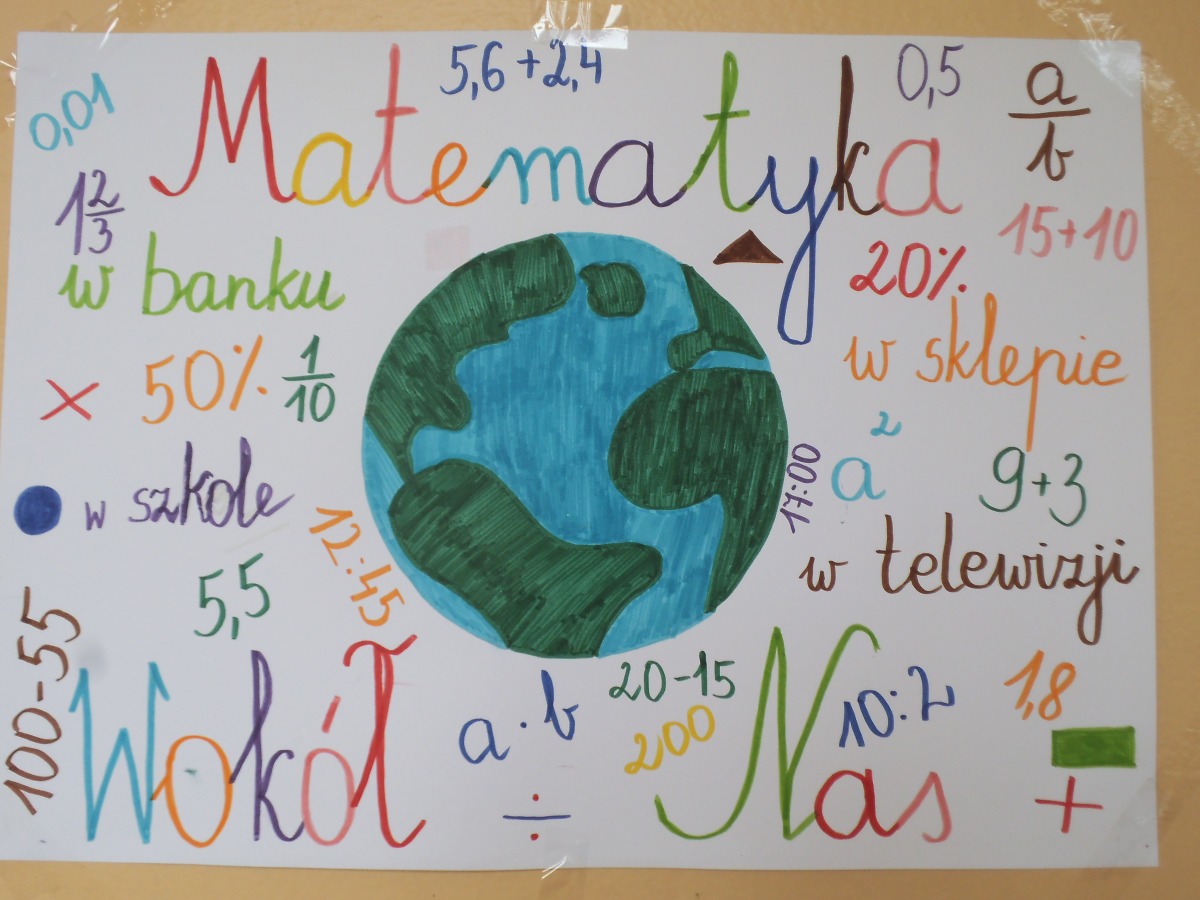 5,6 + 2,4
0,5
a/b
0,01
Matematyka
1 2/3
15+10
w banku
20%
w sklepie
50%
1/10
×
a²
9+3
17:00
w szkole
12:45
w telewizji
5,5
100-55
Wokół Nas
20-15
a · b
200
10:2
1,8
÷
+